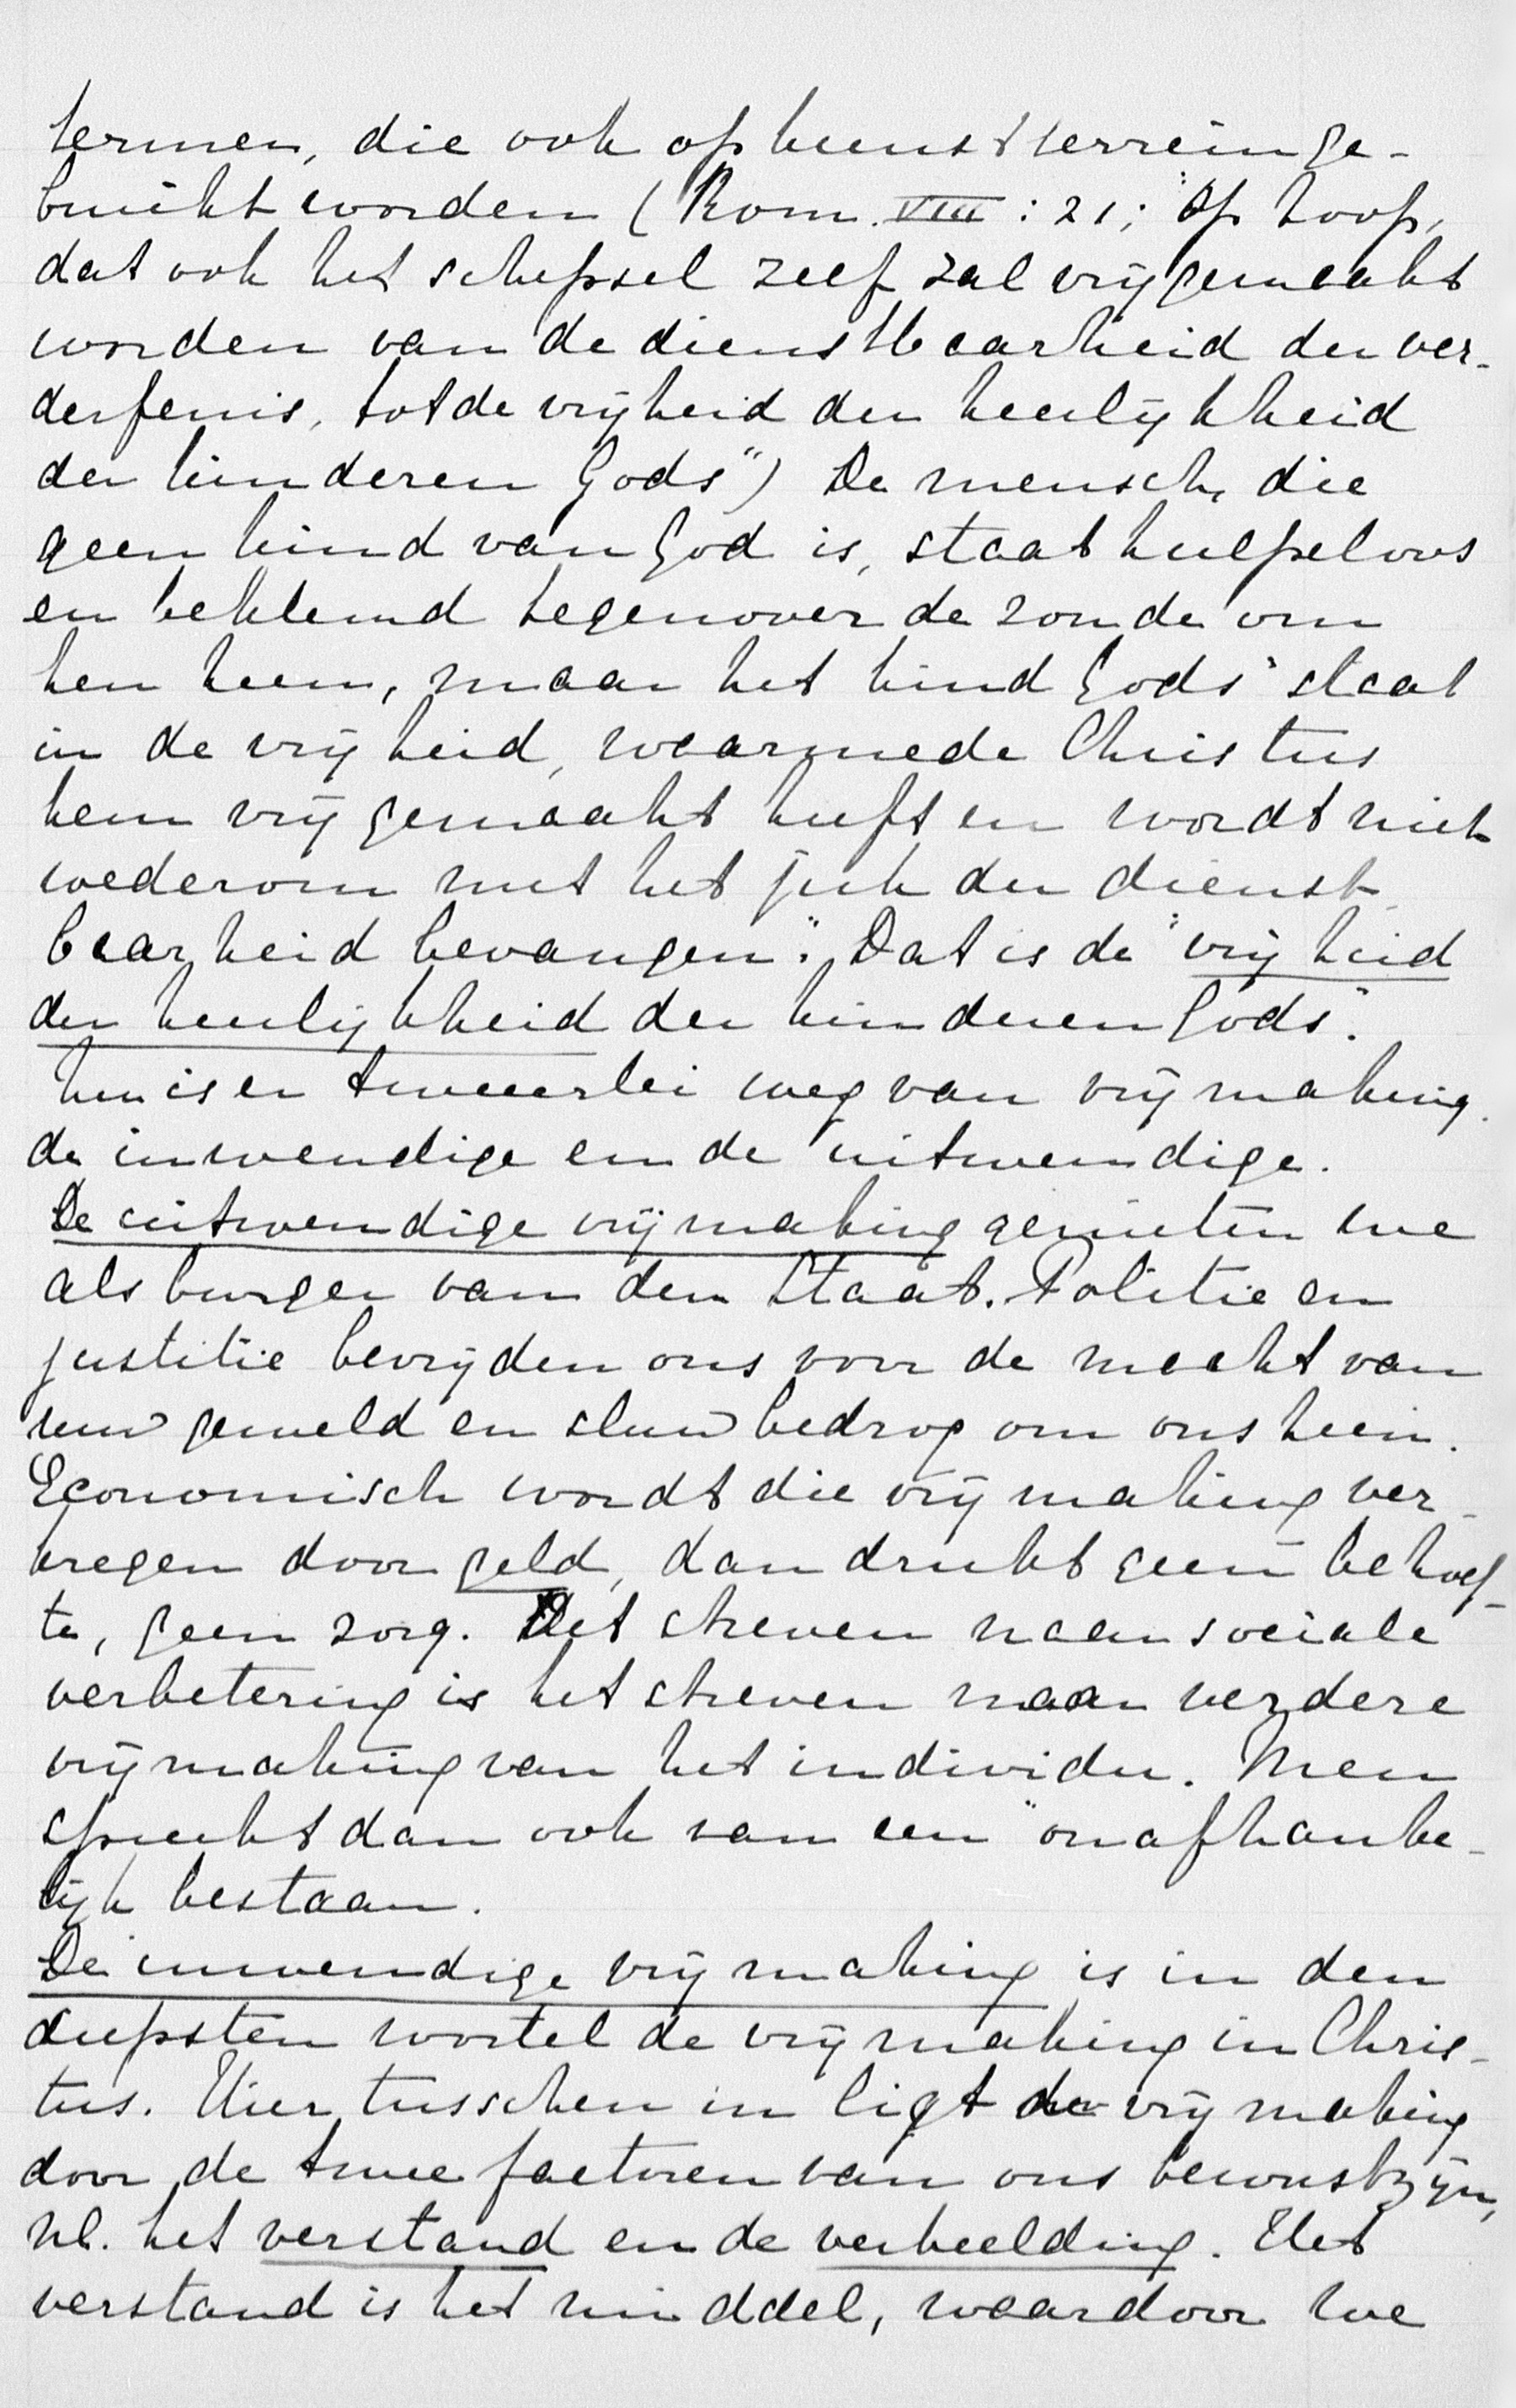 termen, die ook op kunstterrein ge-
bruikt worden (Rom. VIII : 21; "Op hoop,
dat ook het schepsel zelf zal vrijgemaakt
worden van de dienstbaarheid der ver-
derfenis, tot de vrijheid der heerlijkheid
der kinderen Gods") De mensch, die
geen kind van God is, staat hulpeloos
en beklemd tegenover de zonde om
hem heen, maar het kind Gods "staat
in de vrijheid, waarmede Christus
hem vrijgemaakt heeft en wordt niet
wederom met het juk der dienst-
baarheid bevangen". Dat is de "vrijheid
der heerlijkheid der kinderen Gods".
Nu is er tweeërlei weg van vrijmaking.
de inwendige en de uitwendige.
De uitwendige vrijmaking genieten we
als burger van den Staat. Politie en
justitie bevrijden ons voor de macht van
ruw geweld en sluw bedrog om ons heen.
Economisch wordt die vrijmaking ver-
kregen door geld, dan drukt geen behoef-
te, geen zorg. Het streven naar sociale
verbetering is het streven naar verdere
vrijmaking van het individu. Men
spreekt dan ook van een "onafhanke-
lijk bestaan.
De inwendige vrijmaking is in den
diepsten wortel de vrijmaking in Chris-
tus. Hier tusschen in ligt de vrijmaking
door de twee factoren van ons bewustzijn,
nl. het verstand en de verbeelding. Het
verstand is het middel, waardoor we